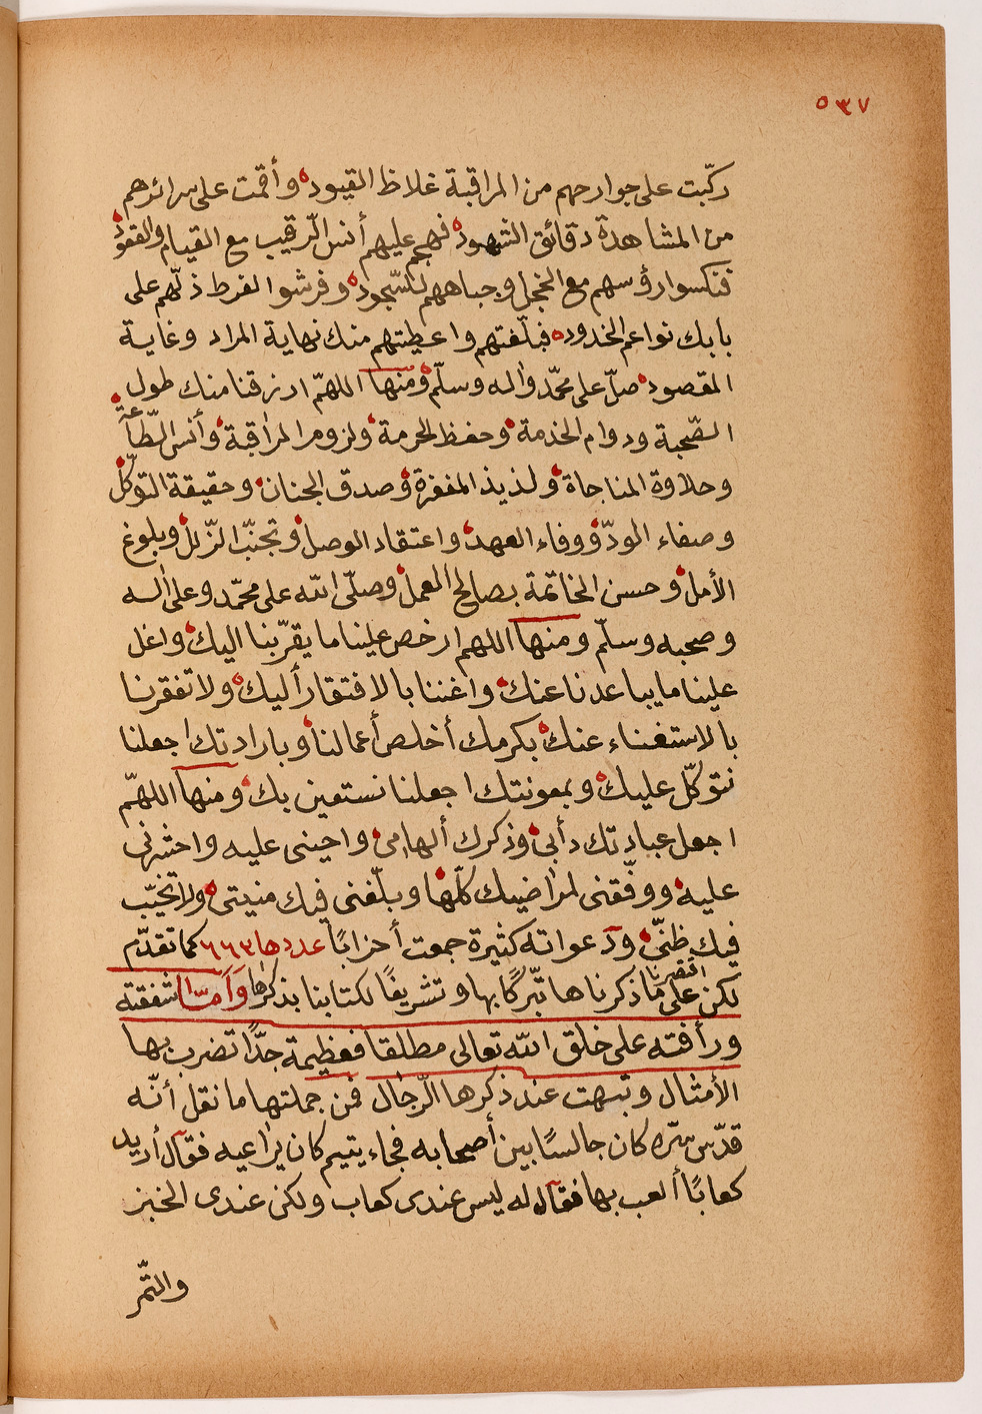 ٥٣٧
ركّبت على جوارحهم من المراقبة غلاظ القيود وأقمت على سرائرهم
من المشاهدة دقائق الشهود فهجم عليهم أنس الرّقيب مع القيام والقعود
فنكسوا رؤسهم مع الخجل وجباههم للسّجود وفرشوا لفرط ذلّهم على
بابك نواعم الخدود فبلّغتهم واعطيتهم منك نهاية المراد وغاية
المقصود صلّ على محمّد واٰله وسلّم ومنها اللهمّ ارزقنا منك طول
الصّحبة ودوام الخدمة وحفظ الحرمة ولزوم المراقبة وأنس الطّاعة
وحلاوة المناجاة ولذيذ المغفرة وصدق الجنان وحقيقة التوكّل
وصفاء الودّ ووفاء العهد واعتقاد الوصل وتجنّب الزّلل وبلوغ
الأمل وحسن الخاتمة بصالح العمل وصلّى الله على محمّد وعلى اٰله
وصحبه وسلّم ومنها اللهم ارخص علينا ما يقرّبنا اليك واغل
علينا ما يباعدنا عنك واغننا بالافتقار أليك ولا تفقرنا
بالاستغناء عنك بكرمك أخلص أعمالنا وبارادتك اجعلنا
نتوكّل عليك وبمعونتك اجعلنا نستعين بك ومنها اللهمّ
اجعل عبادتك دأبى وذكرك ألهامى واحينى عليه واحشرنى
عليه ووفّقنى لمراضيك كلّها وبلّغنى فيك منيتى ولا تخيّب
فيك ظنّى ودعواته كثيرة جمعت أحزابًا عددها ٦٦٣ كما تقدّم
لكن اقتصرنا على ما ذكرناها تبّركًا بها وتشريفًا لكتابنا بذكرها وَأمّا شفقته
ورأفته على خلق الله تعالى مطلقا فعظيمة جدًّا تضرب بها
الأمثال وتبهت عند ذكرها الرّجال فمن جملتها ما نقل أنّه
قدّس سّره كان جالسًا بين أصحابه فجاء يتيم كان يراعيه فقال أريد
كعابًا ألعب بها فقال له ليس عندى كعاب ولكن عندى الخبز
والتّمر